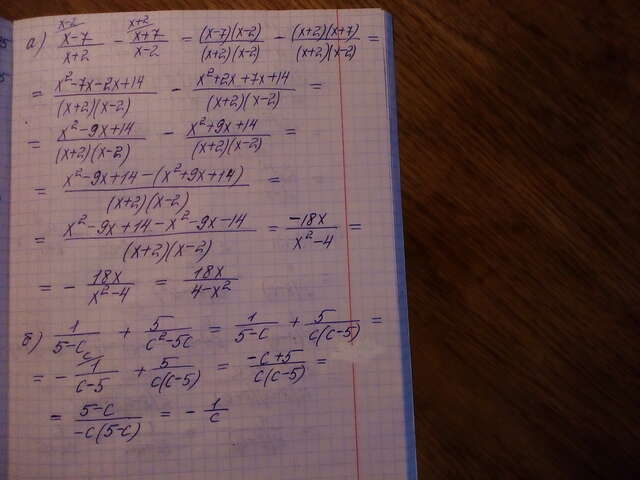 а) x-2 (x-7)/(x+2) - x+2 (x+7)/(x-2) = (x-7)(x-2)/(x+2)(x-2) - (x+2)(x+7)/(x+2)(x-2) =
= (x²-7x-2x+14)/(x+2)(x-2) - (x²+2x+7x+14)/(x+2)(x-2) =
= (x²-9x+14)/(x+2)(x-2) - (x²+9x+14)/(x+2)(x-2) =
= (x²-9x+14-(x²+9x+14))/(x+2)(x-2) =
= (x²-9x+14-x²-9x-14)/(x+2)(x-2) = -18x/(x²-4) =
= - 18x/(x²-4) = 18x/(4-x²)
б) 1/(5-c) + 5/(c²-5c) = 1/(5-c) + 5/c(c-5) =
= - c 1/(c-5) + 5/c(c-5) = (-c+5)/c(c-5) =
= (5-c)/-c(5-c) = - 1/c